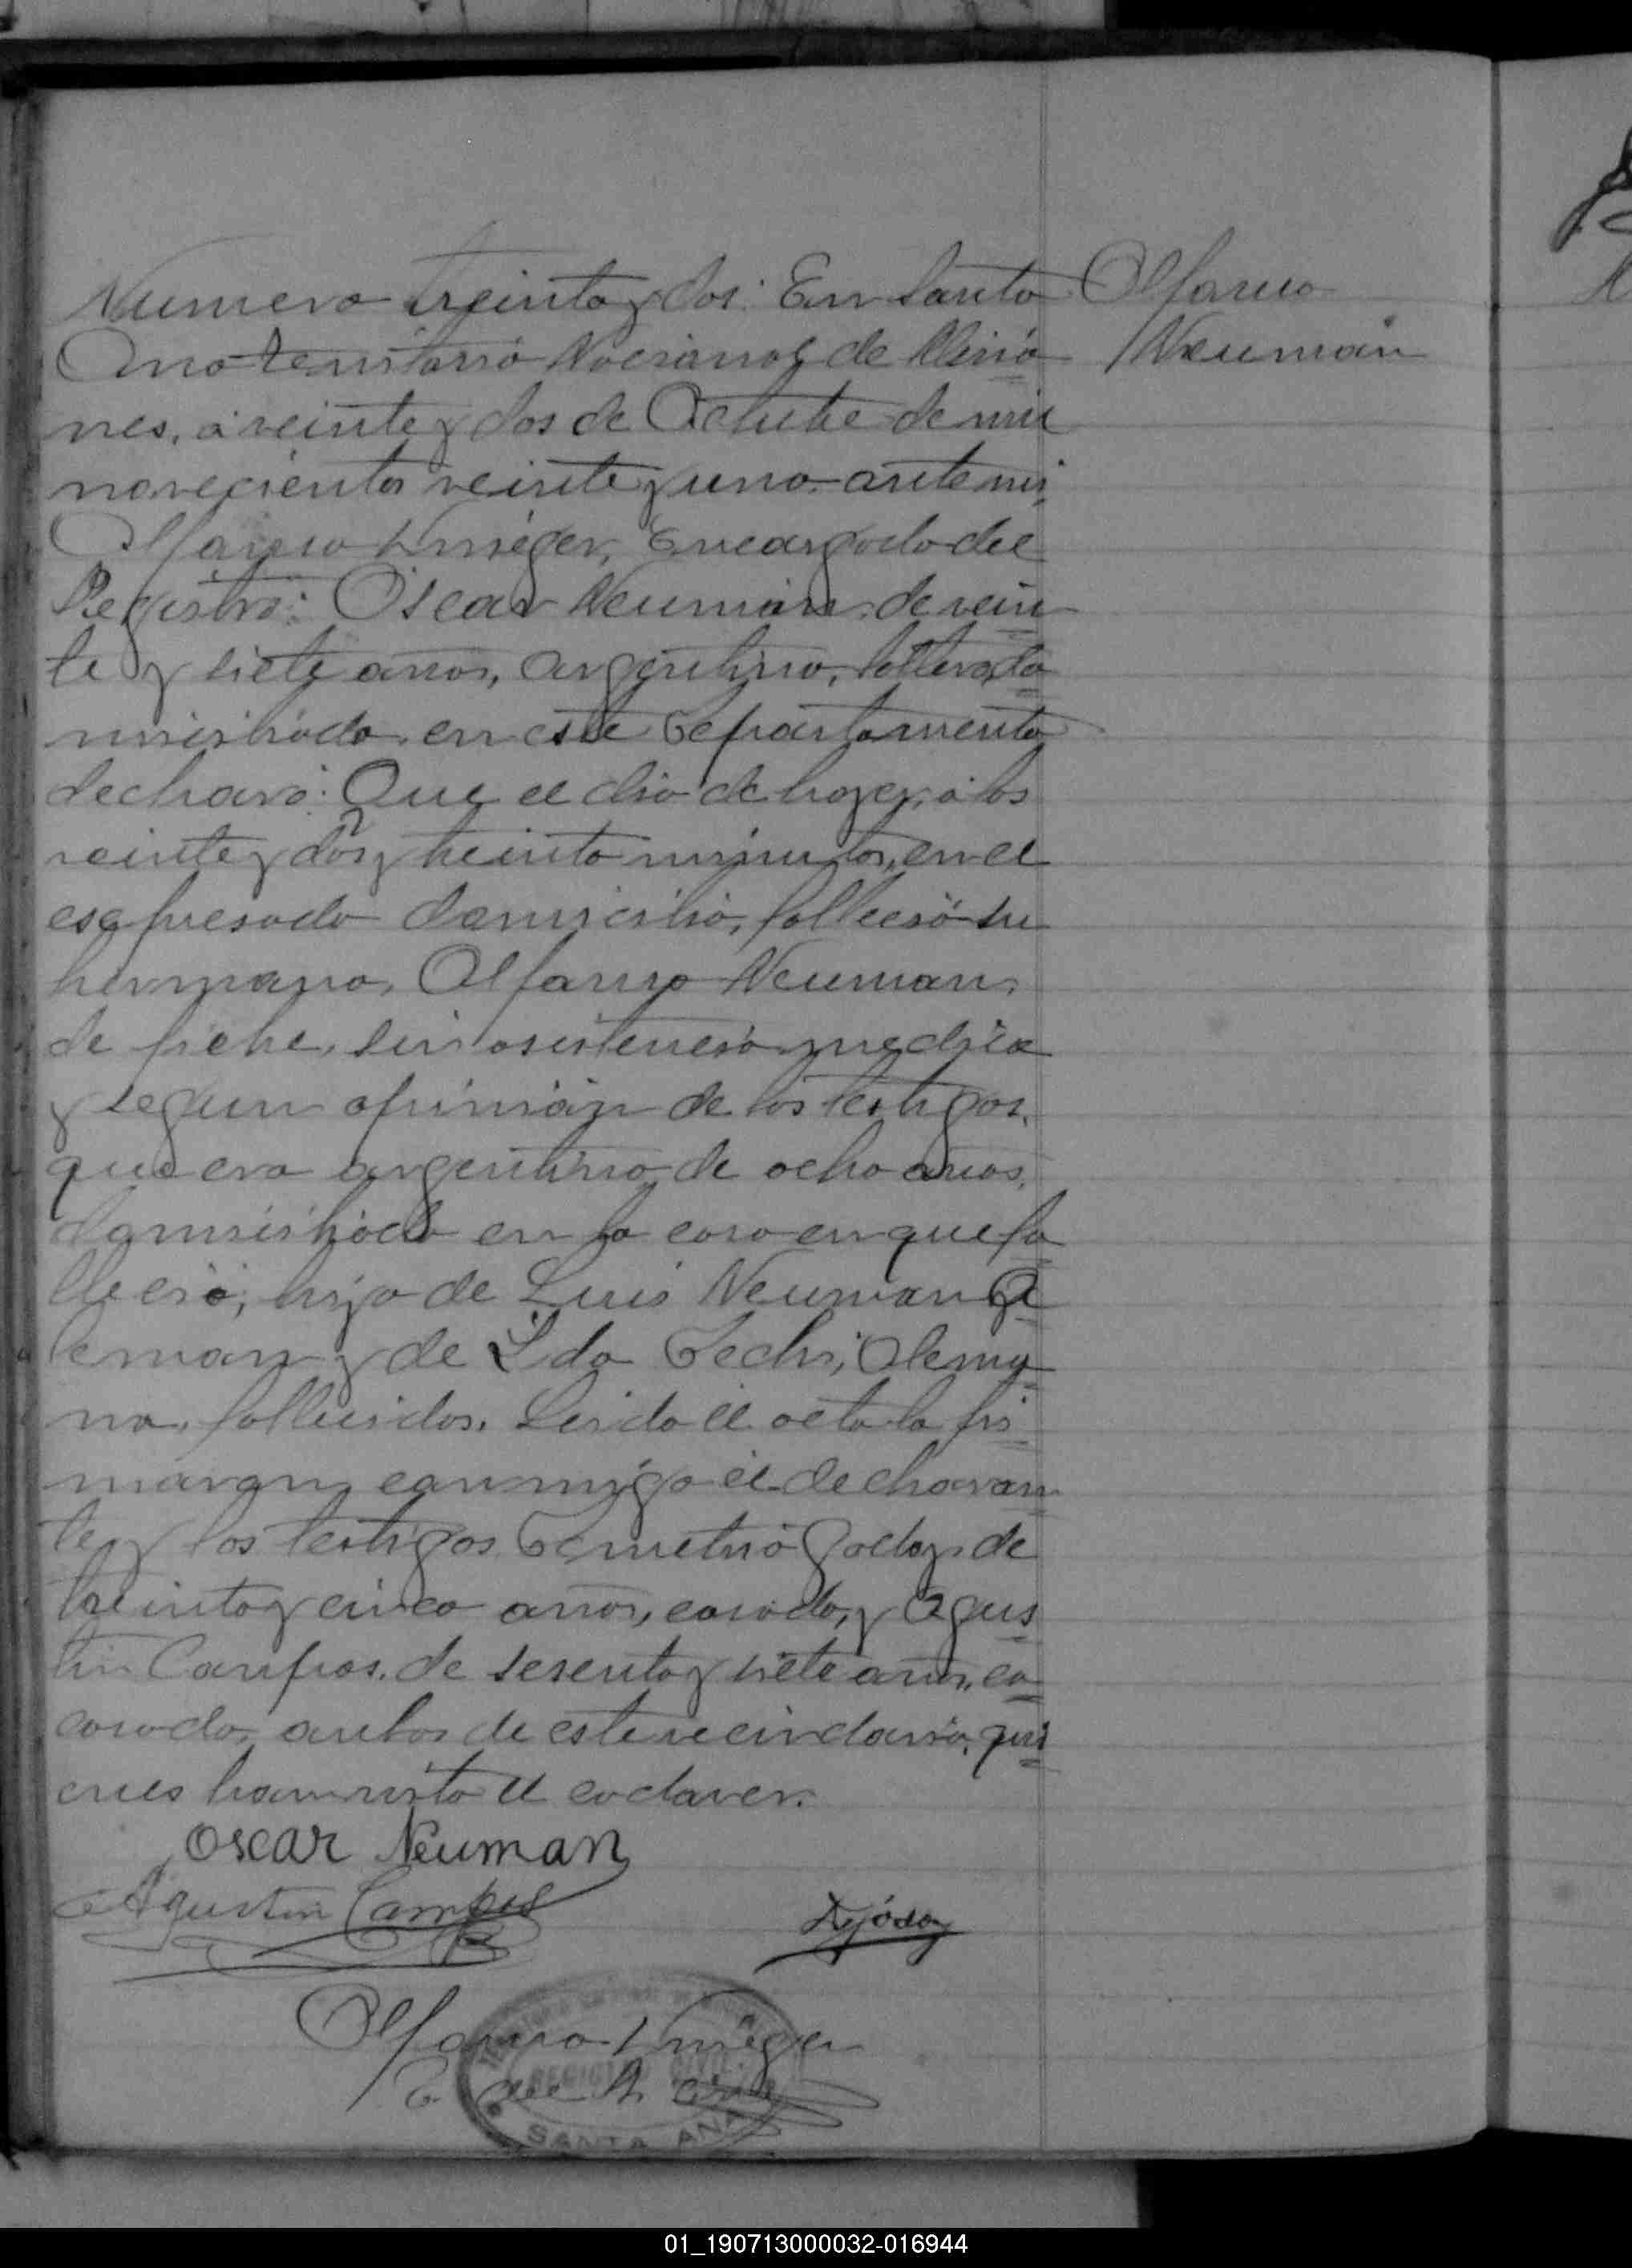 Numero treinta y dos: En Santa
Ana territorio Nacional de Misio
nes, a veinte y dos de Octubre de mil
novecientos veinte y uno ante mi,
Alfonso Encargado del
Registro: Oscar Neuman de vein
te y siete anos, argentino, soltero, do
misiliado en este Departamento
declaro: Que el dia de hoy, a las
veinte y dos y treinta minutos, en el
esapresado domicilio, fallecio su
hermano, Alfonso Neuman,
de fiebre, sin asistencia medica
y segun opinion de los testigos,
que era argentino de ocho anos,
domisiliado en la casa en que fa
llecio, hijo de Luis Neuman A
leman y de Ida Alema
na, fallecidos. Leida el acta la fir
maron conmigo el declaran
te y los testigos Demetrio Godoy de
treinta y cinco anos, casado, y Agus
tin Campos, de sesenta y siete anos, ca
casado, anbos de este vecindario, qui
enes han visto el cadaver.
Alfonso
Neuman
Oscar Neuman
Agustin Campos
Alfonso
E. del R. Civil
REGISTRO CIVIL
SANTA ANA
01_190713000032-016944